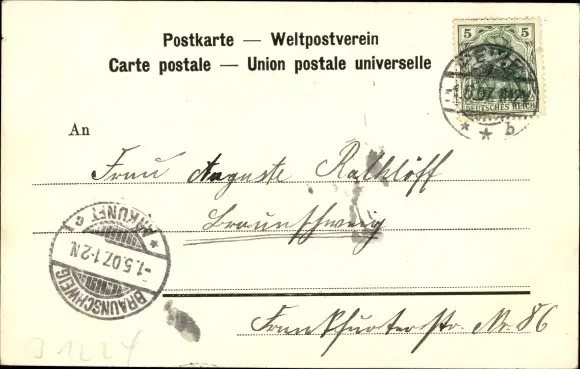 Postkarte — Weltpostverein
Carte postale — Union postale universelle
5 5
DEUTSCHES REICH
b
An
Frau Auguste Rathlöff
Braunschweig
ANKUNFT C
-1.5.07.1-2N
BRAUNSCHWEIG
Frankfurterstr. Nr. 86